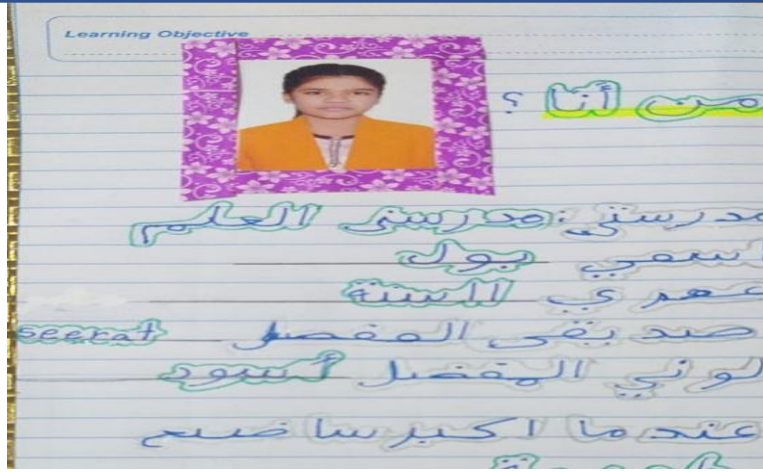 Learning Objective
من أنا ؟
مدرستي: مدرستى العلم
اسمي بول
عمري السنة
صديقى المفضل seerat
لوني المفضل أسود
عندما اكبر سا